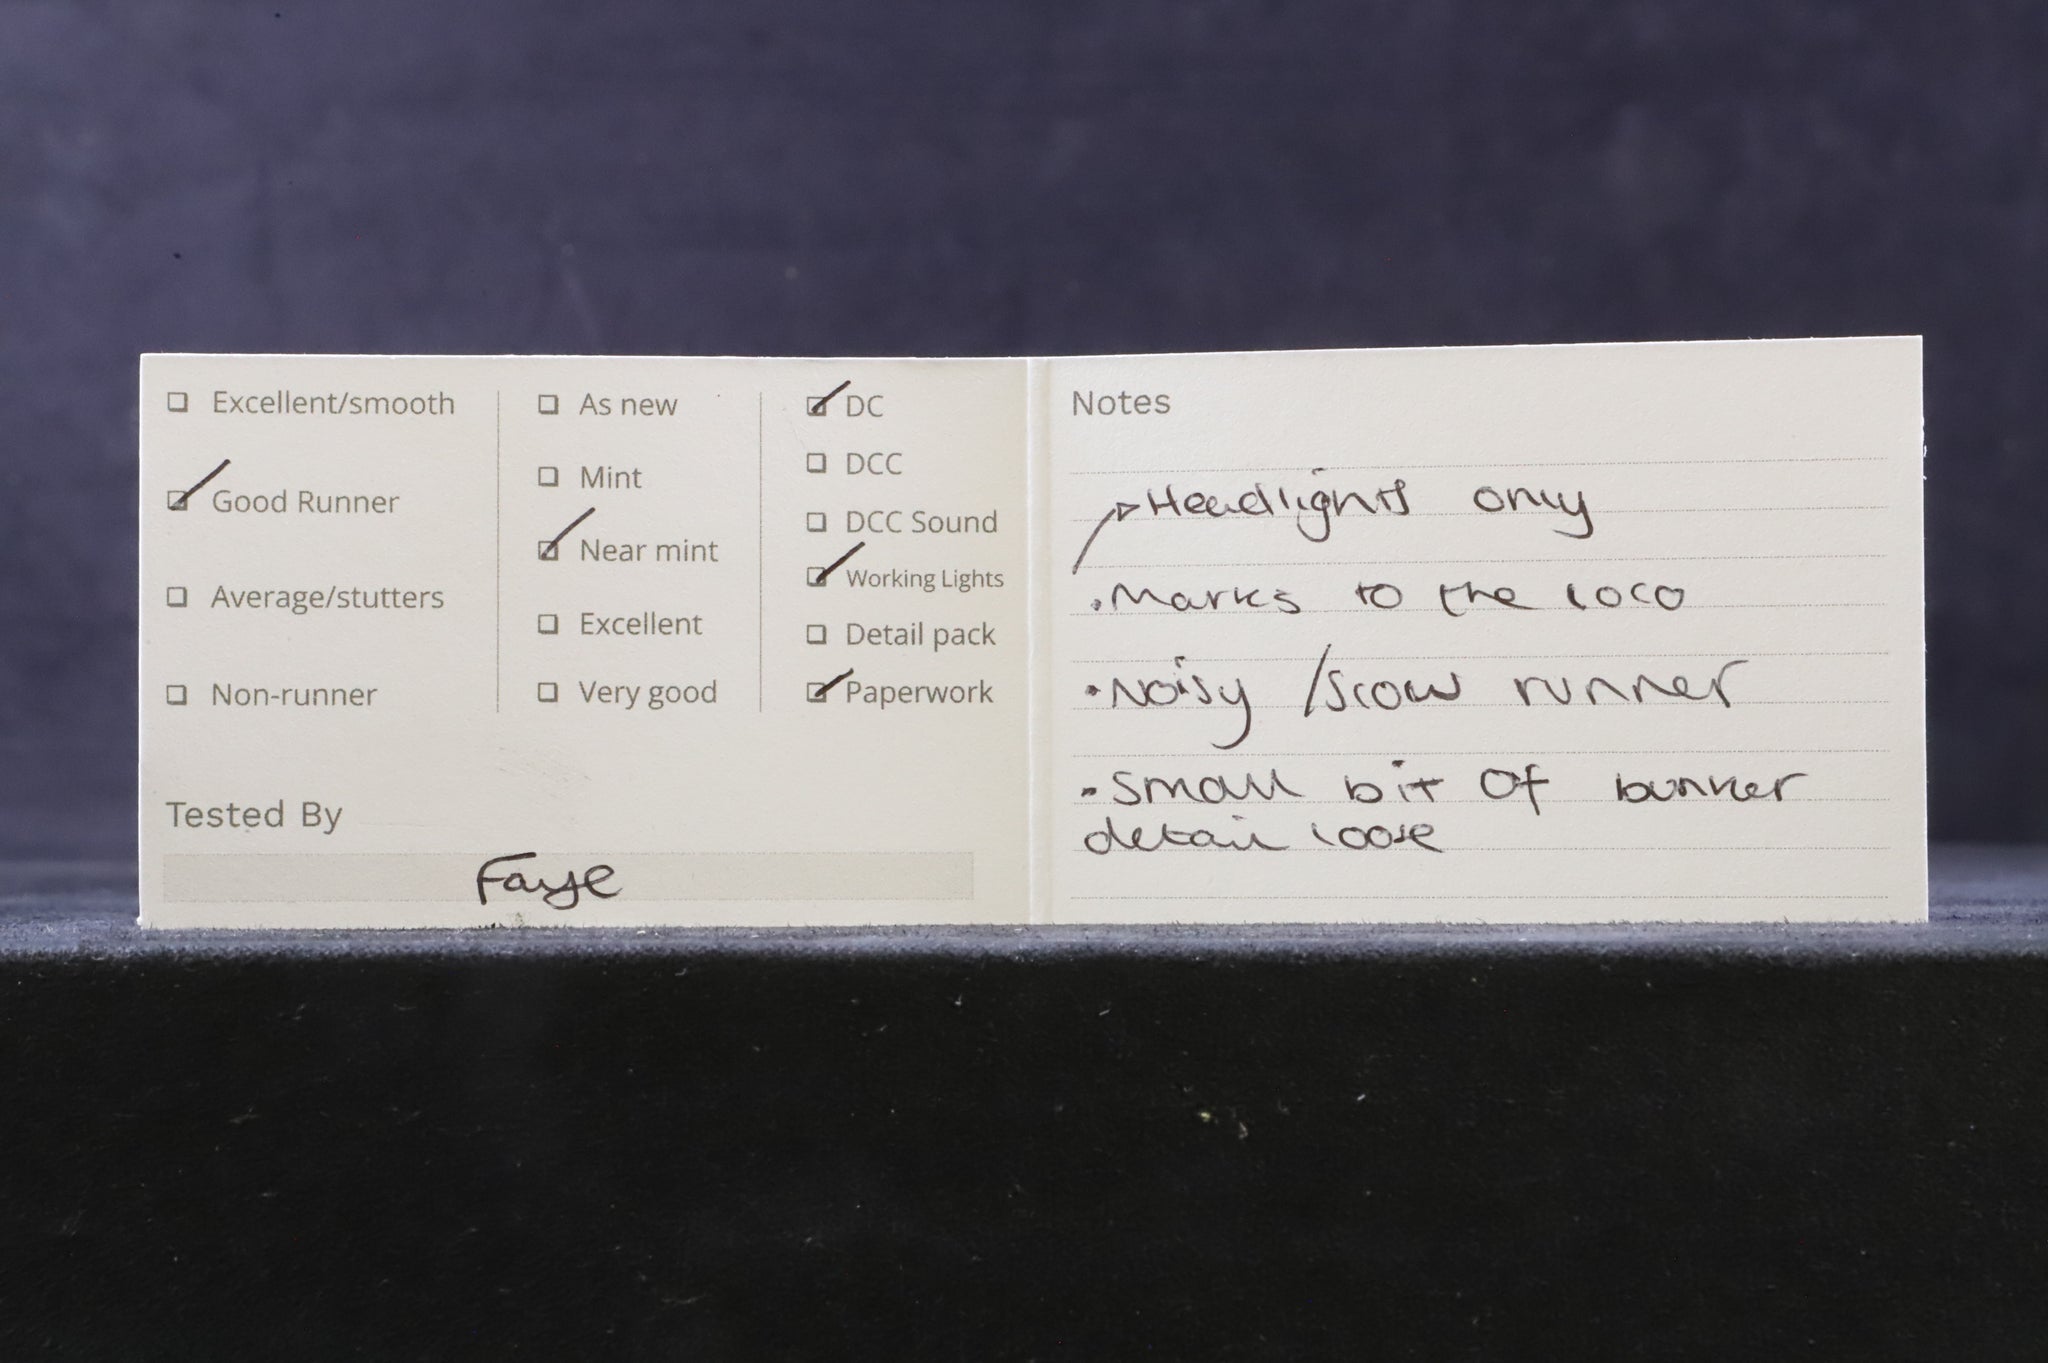 Excellent/smooth
Good Runner
Average/stutters
Non-runner
As new
Mint
Near mint
Excellent
Very good
DC
DCC
DCC Sound
Working Lights
Detail pack
Paperwork
Tested By
Faye
Notes
Headlights only
• Marks to the loco
• Noisy /slow runner
• Small bit of bunker
detail loose